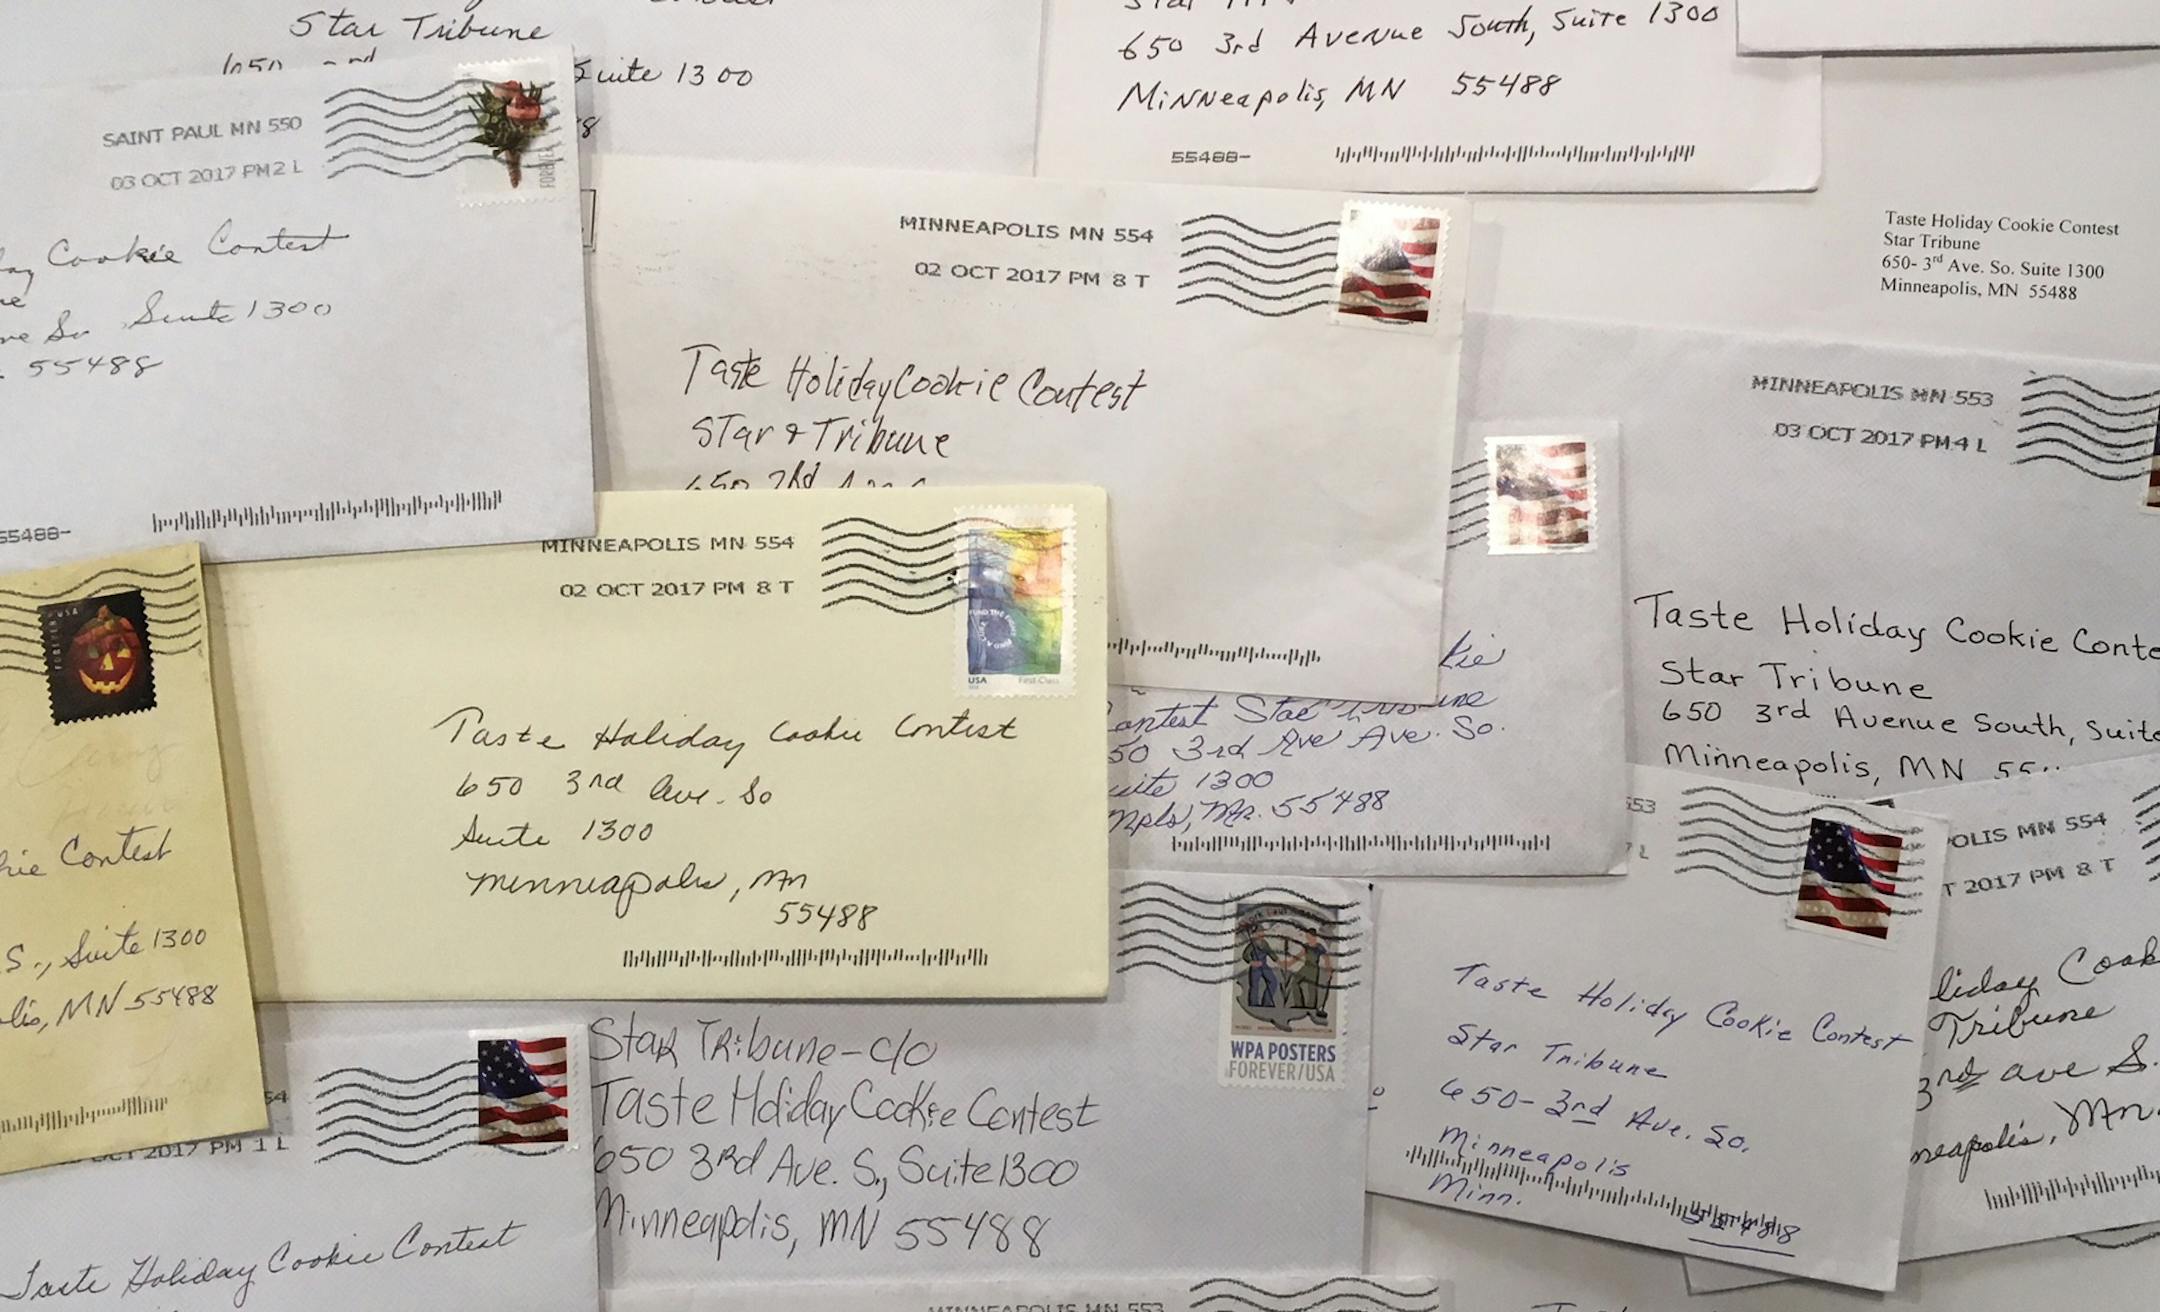 Star Tribune
Suite 1300
650 3rd Avenue South, Suite 1300
Minneapolis, MN 55488
55488-
SAINT PAUL MN 550
03 OCT 2017 PM 2 L
FOREVER
Cookie Contest
So Suite 1300
55488
55488-
MINNEAPOLIS MN 554
02 OCT 2017 PM 8 T
Taste Holiday Cookie Contest
Star & Tribune
650
Taste Holiday Cookie Contest
Star Tribune
650- 3rd Ave. So. Suite 1300
Minneapolis, MN 55488
MINNEAPOLIS MN 553
03 OCT 2017 PM 4 L
Taste Holiday Cookie Conte
Star Tribune
650 3rd Avenue South, Suite
Minneapolis, MN 55
MINNEAPOLIS MN 554
02 OCT 2017 PM 8 T
FUND THE FIGHT FIND A CURE
USA First-Class
Taste Holiday Cookie Contest
650 3rd Ave. So
Suite 1300
Minneapolis, Mn
55488
kie
ontest Star
50 3rd Ave Ave. So.
uite 1300
Mpls, Mn. 55488
USA
FOREVER
kie Contest
S., Suite 1300
olis, MN 55488
54
OCT 2017 PM 1 L
Taste Holiday Cookie Contest
Star Tribune-c/o
Taste Holiday Cookie Contest
650 3rd Ave. S., Suite 1300
Minneapolis, MN 55488
WPA POSTERS
FOREVER/USA
553
L
Taste Holiday Cookie Contest
Star Tribune
650-3rd Ave. So.
Minneapolis
Minn.
55488
OLIS MN 554
T 2017 PM 8 T
liday Cook
Tribune
3rd ave S.
neapolis, Mn
MINNEAPOLIS MN 553